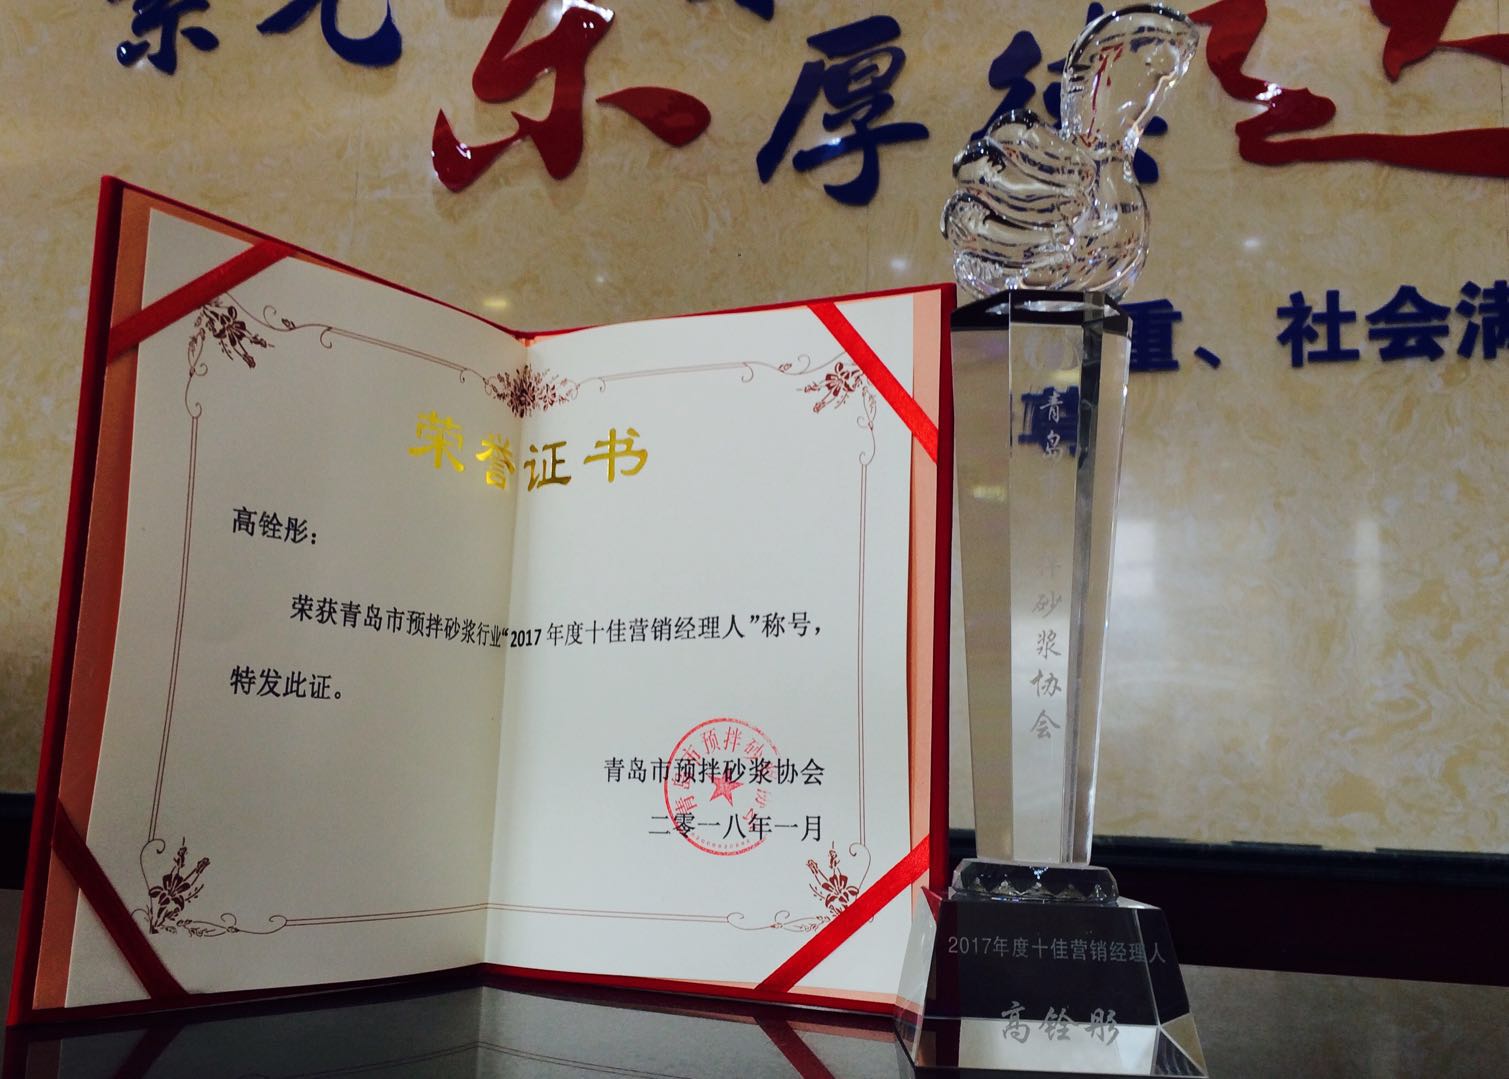 东
厚德
重、社会满
荣誉证书
高铨彤：
荣获青岛市预拌砂浆行业“2017年度十佳营销经理人”称号，
特发此证。
青岛市预拌砂浆协会
二零一八年一月
青岛市预拌砂浆协会
青岛
拌砂浆协会
2017年度十佳营销经理人
高铨彤